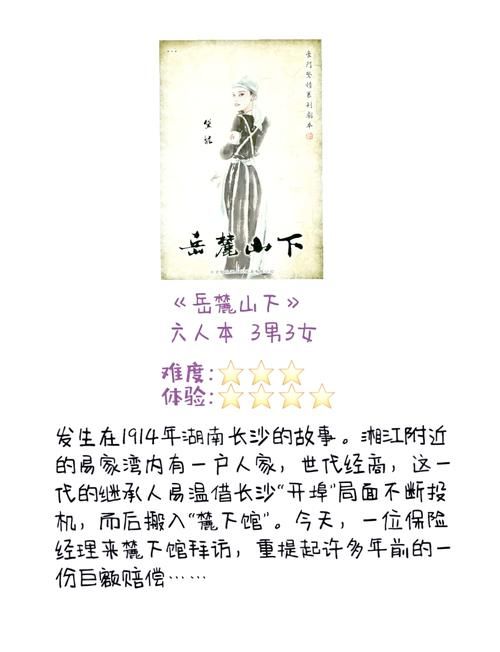 岳麓山下
《岳麓山下》
六人本 3男3女
难度:
体验:
发生在1914年湖南长沙的故事。湘江附近
的易家湾内有一户人家，世代经商，这一
代的继承人易温借长沙“开埠”局面不断投
机，而后搬入“麓下馆”。今天，一位保险
经理来麓下馆拜访，重提起许多年前的一
份巨额赔偿……